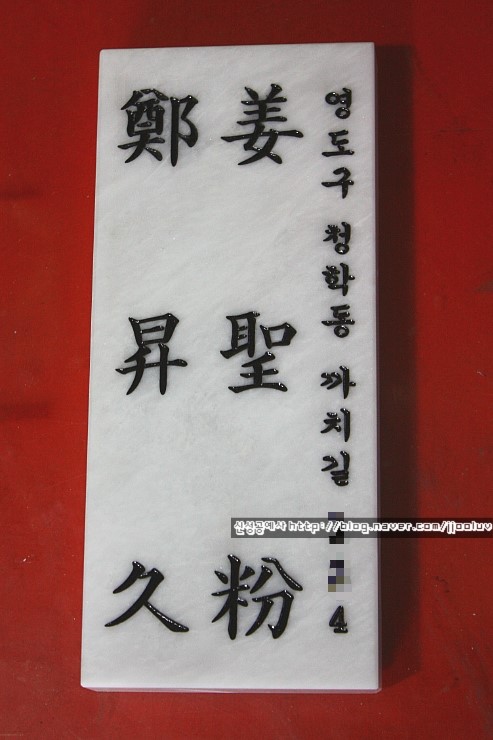 영도구 청학동 까치길 4
姜聖粉
鄭昇久
신성공예사 http://blog.naver.com/jjooluv